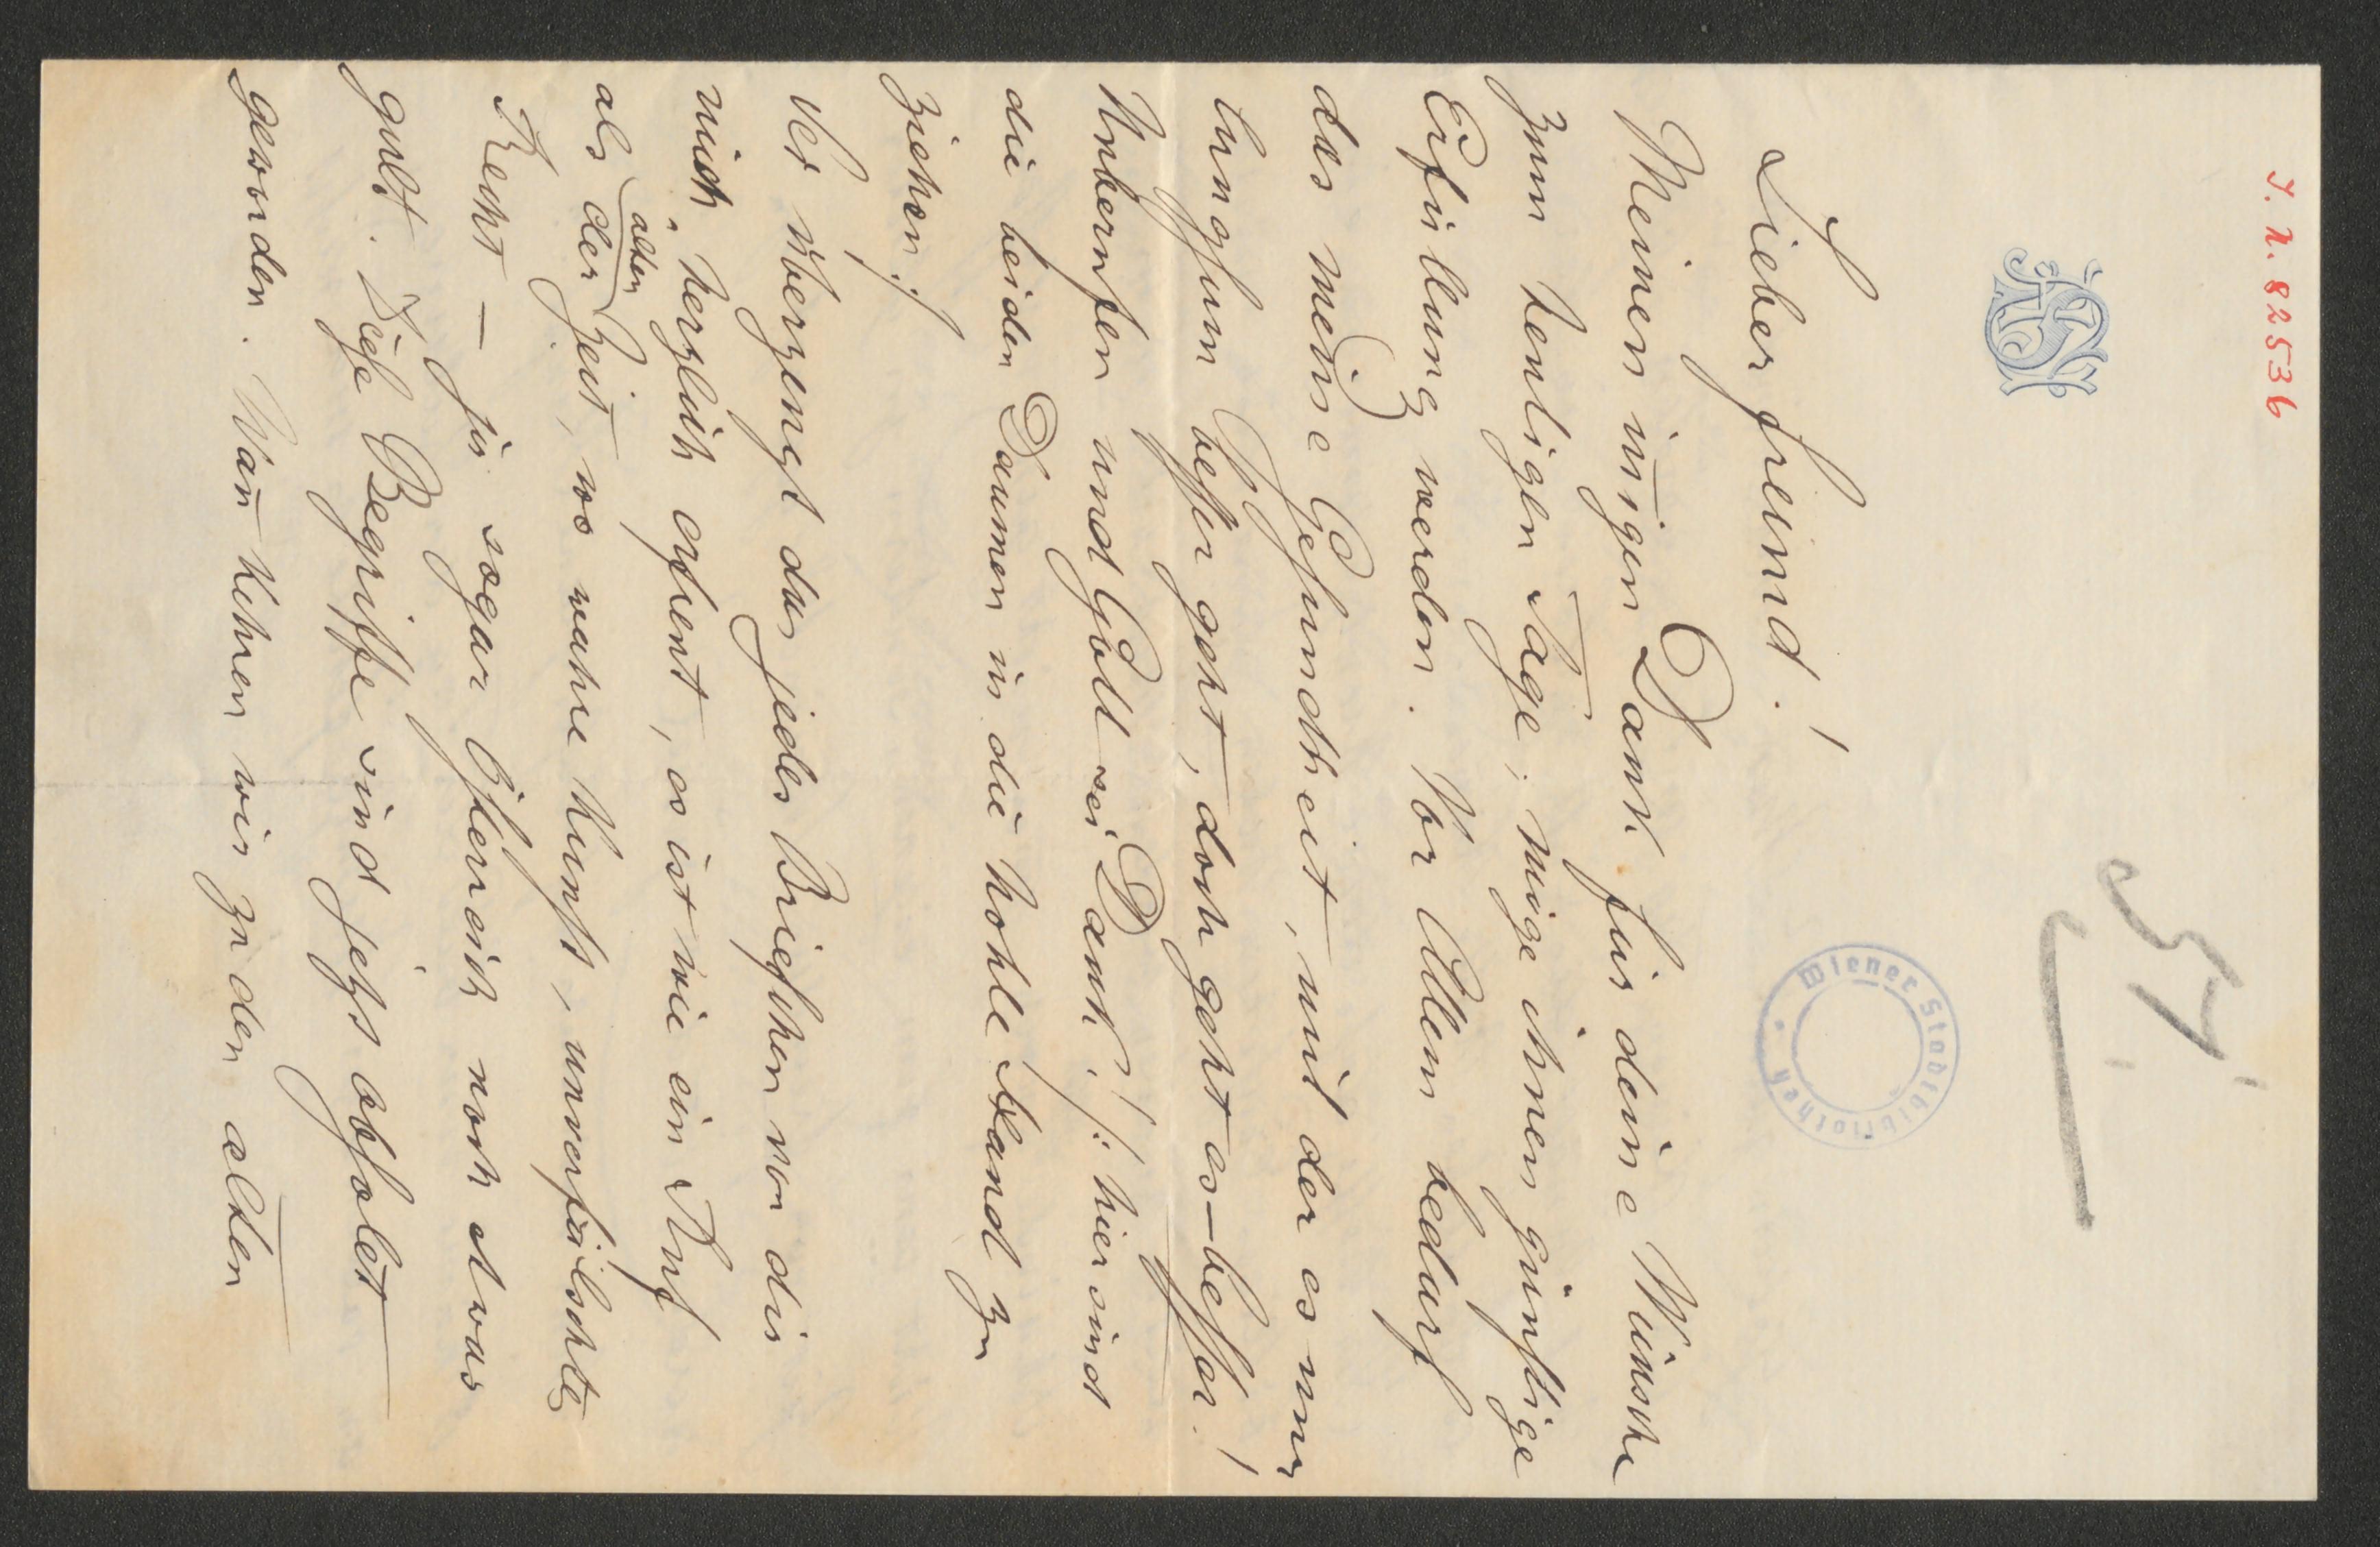 I. N. 82536
54.
Wiener Stadtbibliothek
Lieber Freund!
Meinen iñigen Dank für deine Wünsche
zum heutigen Tage; möge ihnen günstige
Erfüllung werden. Vor Allem bedarf
das meine Gesundheit, mit der es nur
langsam besser geht, doch geht es – besser!
Unberufen und Gott sei Dank! /: hier sind
die beiden Daumen in die hohle Hand zu
ziehen :/
Sei überzeugt das jedes Briefchen von dir
mich herzlich erfreut, es ist wie ein Ruf
alten
als der Zeit, wo wahre Kunst, unverfälschtes
Recht – ja sogar Österreich noch etwas
galt. Diese Begriffe sind jetzt obsolet
geworden. Wañ kehren wir zu den alten